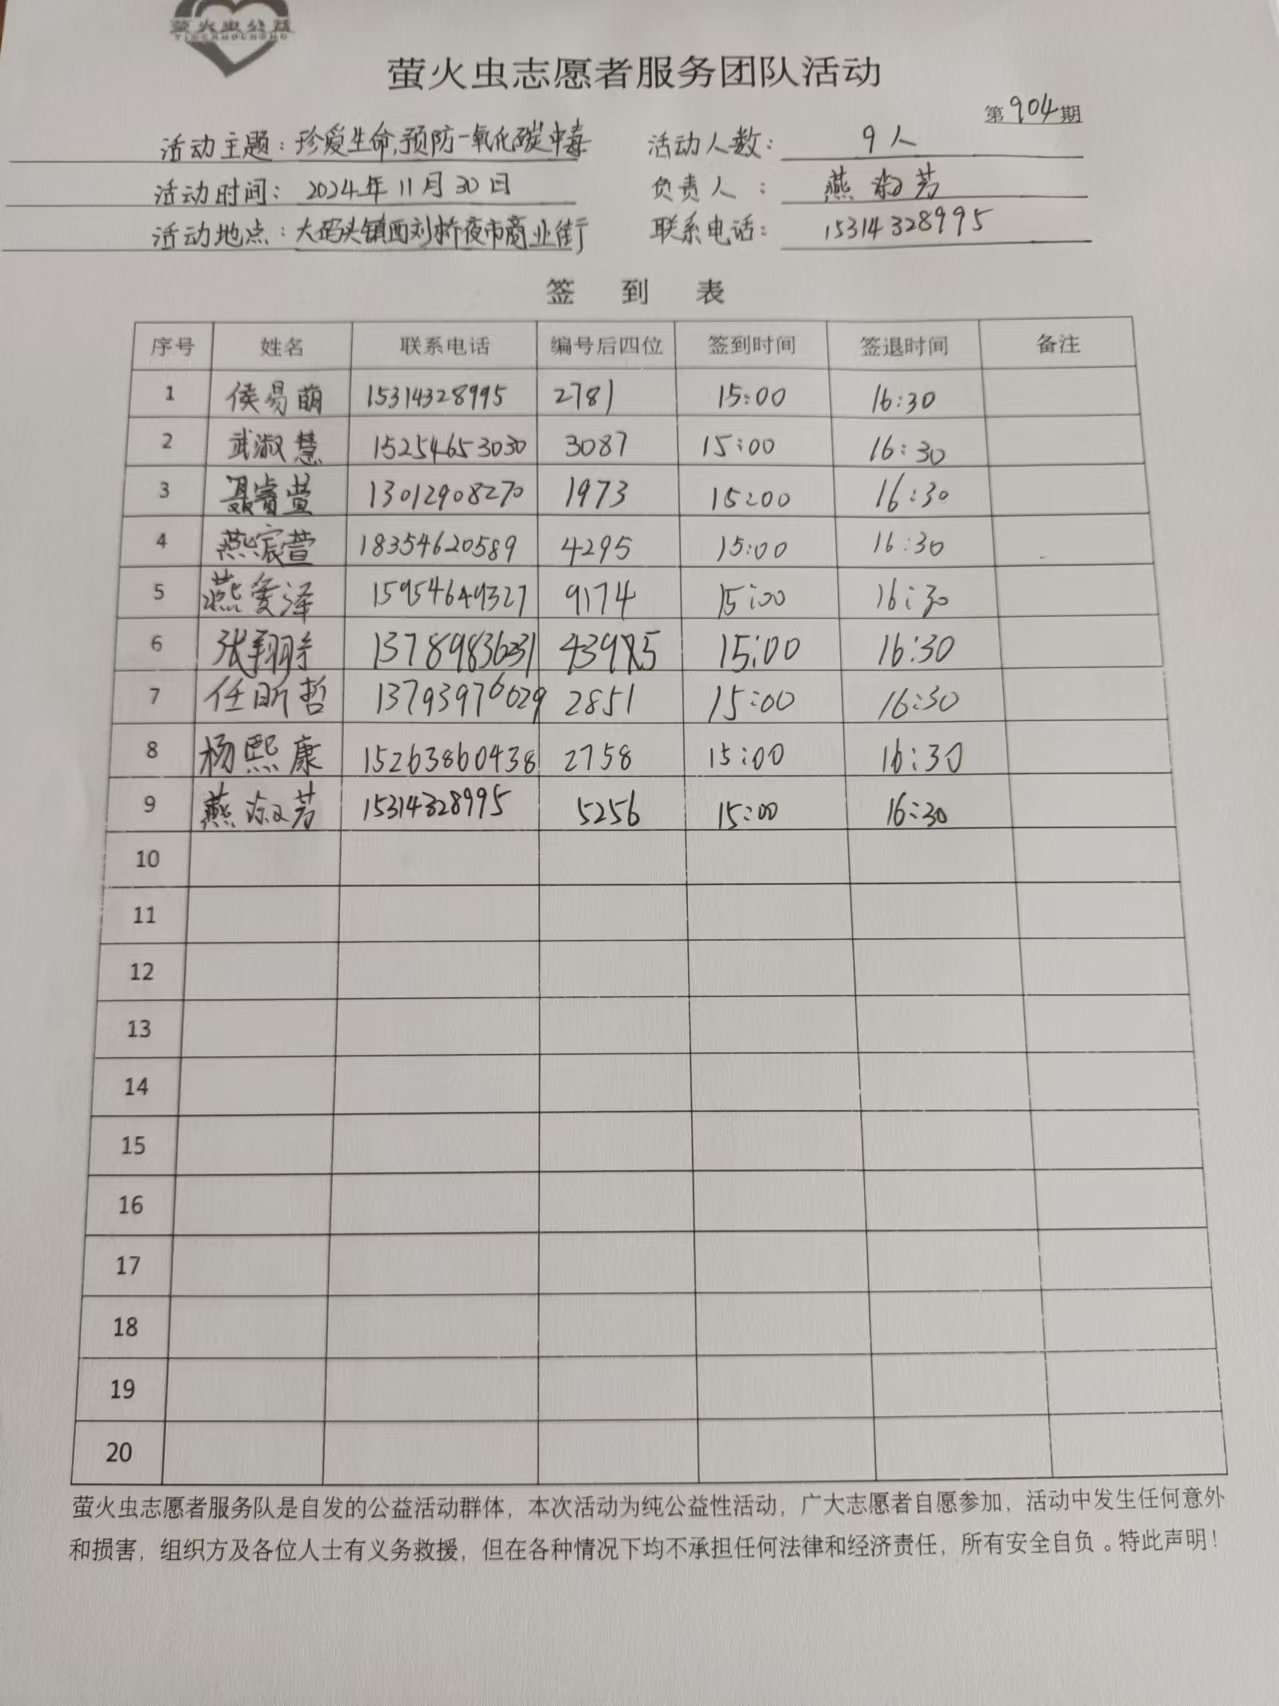 萤火虫公益
YINGHUOCHONG
萤火虫志愿者服务团队活动
第904期
活动主题：珍爱生命,预防一氧化碳中毒 活动人数：9人
活动时间：2024年11月30日 负责人：燕淑芳
活动地点：大码头镇西刘桥夜市商业街 联系电话：15314328995
签到表
序号 姓名 联系电话 编号后四位 签到时间 签退时间 备注
1 侯易萌 15314328995 2781 15:00 16:30
2 武淑慧 15254653030 3087 15:00 16:30
3 聂睿萱 13012908270 1973 15:00 16:30
4 燕宸萱 18354620589 4295 15:00 16:30
5 燕爱泽 15954649327 9174 15:00 16:30
6 张翔宇 15:00 16:30
7 任昕哲 13793976029 2851 15:00 16:30
8 杨熙康 15263860438 2758 15:00 16:30
9 燕淑芳 15314328995 5256 15:00 16:30
10
11
12
13
14
15
16
17
18
19
20
萤火虫志愿者服务队是自发的公益活动群体，本次活动为纯公益性活动，广大志愿者自愿参加，活动中发生任何意外
和损害，组织方及各位人士有义务救援，但在各种情况下均不承担任何法律和经济责任，所有安全自负。特此声明！